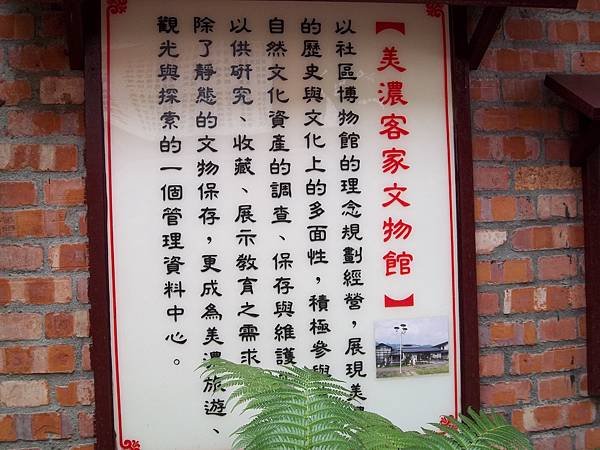 【美濃客家文物館】
以社區博物館的理念規劃經營，展現美
的歷史與文化上的多面性，積極參與
自然文化資產的調查、保存與維護
以供研究、收藏、展示教育之需求
除了靜態的文物保存，更成為美濃旅遊、
觀光與探索的一個管理資料中心。